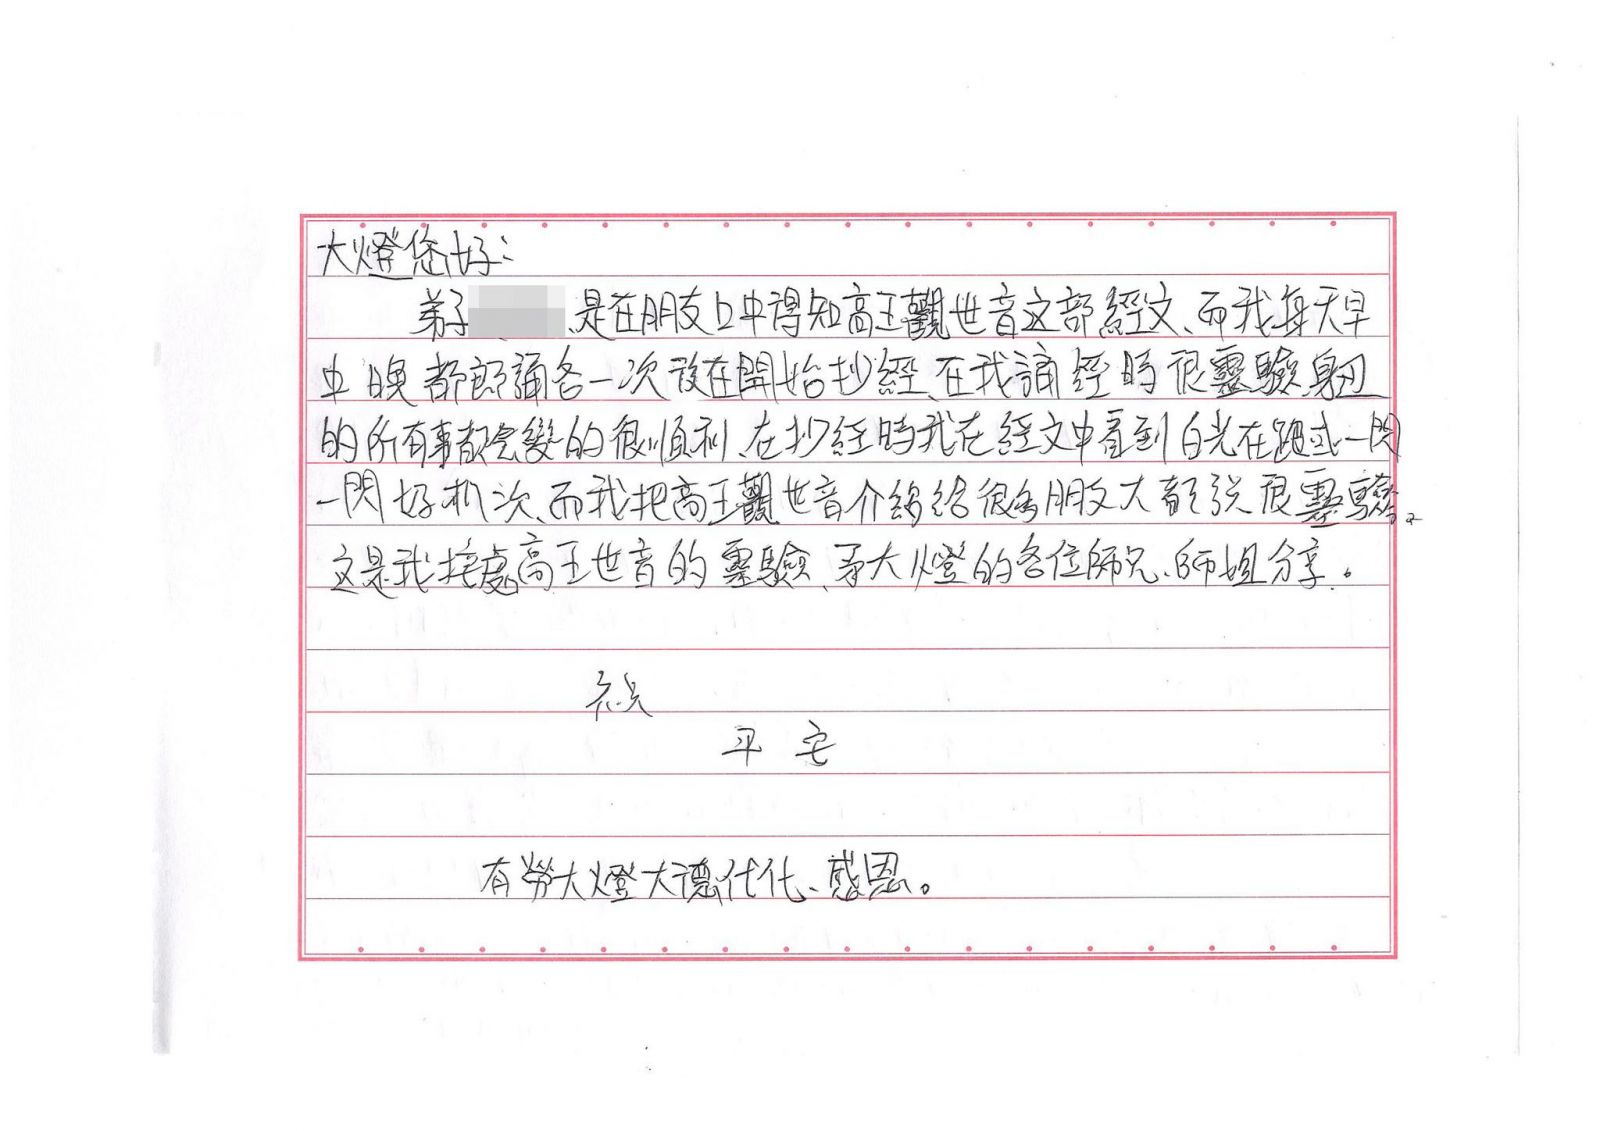 大燈您好：
弟子、是在朋友口中得知高王觀世音这部經文、而我每天早
中晚都朗誦各一次現在開始抄經、在我誦經時很靈驗身边
的所有事都会變的很順利、在抄經時我在經文中看到白光在跑或一閃
一閃好机次、而我把高王觀世音介紹給很多朋友大都说很靈驗。
这是我接處高王世音的靈驗、和大燈的各位師兄、師姐分享。
祝
平安
有勞大燈大德代化、感恩。